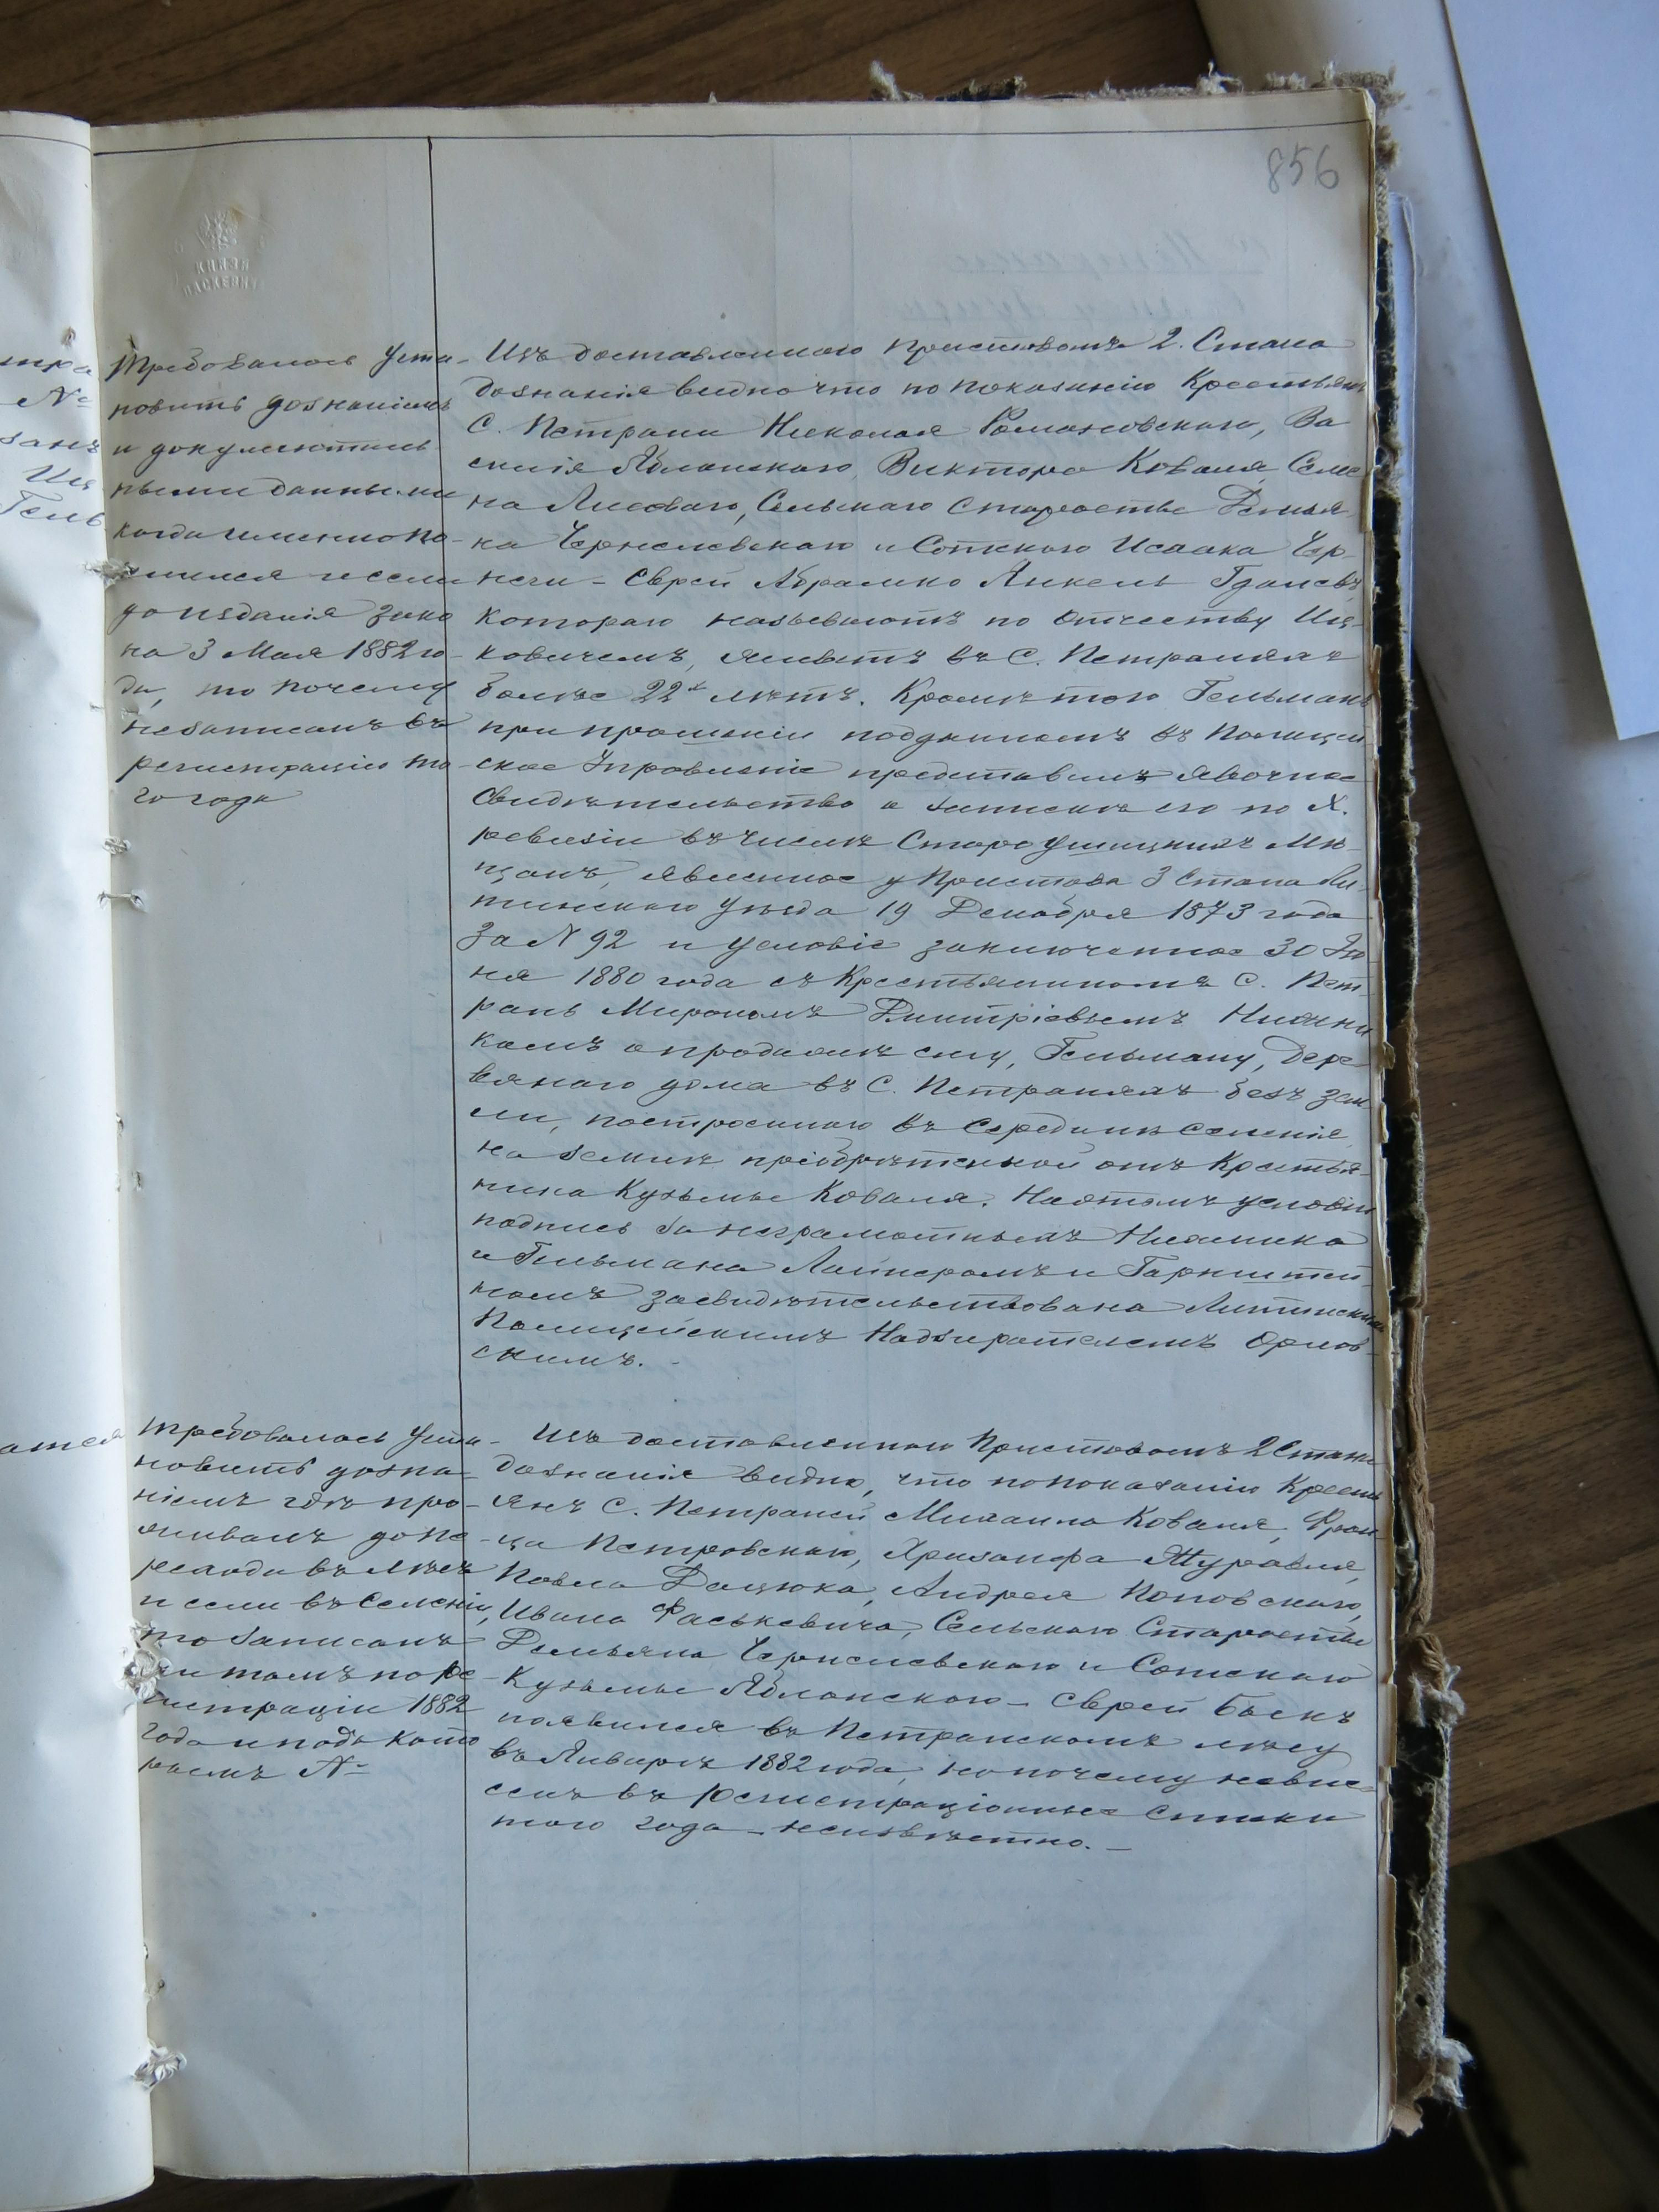 856
КНЯЗЯ
ПАСКЕВИЧ
Требовалось уста-
новить дознаніемъ
и документаль
ными данными
когда именно по-
селился и если
до изданія зако
на 3 Мая 1882 го-
да, то почему
незаписанъ въ
регистрацію то
го года
Изъ доставленнаго приставомъ 2. Стана
дознанія видно что по показанію Крестьянъ
С. Петрани Николая Романовскаго, Ва
силія Яблонскаго, Виктора Коваля, Семе
на Лисоваго, Сельскаго Старосты Демья
на Чернелевскаго и Сотскаго Исаака Чор
неги - Еврей Абрамко Янкель Гдалевъ
котораго называютъ по отчеству Иц-
ковичемъ, живетъ въ С. Петраняхъ
болѣе 22х лѣтъ. Кромѣ того Гельманъ
при прошеніи поданномъ въ Полицей
ское Управленіе представилъ явочное
Свидѣтельство о запискѣ его по X.
ревизіи въ числѣ Староушицкихъ Мѣ-
щанъ, явленное у Пристава 3 Стана Ли-
тинскаго Уѣзда 19 Декабря 1873 года
За N 92 и условіе заключенное 30 Iю
ня 1880 года съ Крестьяниномъ С. Пет-
рань Мирономъ Дмитріевымъ
о продажѣ ему, Гельману, дере-
вяннаго дома въ С. Петраняхъ безъ зем
ли, построеннаго въ Серединѣ селенія
на землѣ пріобрѣтенной отъ Крестья-
нина Кузьмы Коваля. На этомъ условіи
подпись за неграмотныхъ
и Гельмана и Гарнштей
номъ засвидѣтельствована Литинскимъ
Полицейскимъ Надзирателемъ Орлов-
скимъ. -
Требовалось уста-
новить дозна-
ніемъ гдѣ про-
живалъ до пе-
рехода въ лѣсъ
и если въ селеніи,
то записанъ
ли тамъ по ре-
гистраціи 1882
года и подъ кото
рымъ №
Изъ доставленнаго Приставомъ 2 Стана
дознанія видно, что по показанію Кресть
янъ С. Петраней Михаила Коваля, Фран
ца Петровскаго, Хрисанфа Журавля,
Павла Дацюка, Андрея Поповскаго,
Ивана Фаськевича, Сельскаго Старосты
Демьяна Чернелевскаго и Сотскаго
Кузьмы Яблонскаго - Еврей Быкъ
появился въ Петранскомъ лѣсу
въ Январѣ 1882 года, но почему невне-
сенъ въ регистраціонные списки
того года - неизвѣстно. -